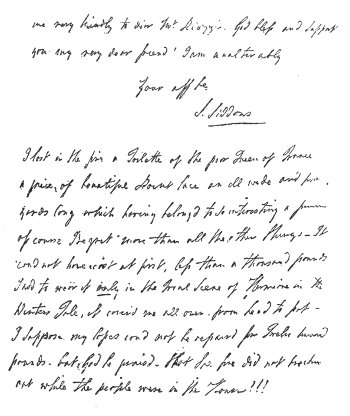 me very kindly to dear Mr. Piozzi. God bless and support
you my very dear friend! I am unalterably
Your affte.
S. Siddons
I lost in the fire a Toilette of the poor Queen of France
a piece, of beautiful Point lace an ell wide and five
yards long which having belong'd to so interesting a person
of course I regret more than all the other things - It
coud not have cost at first, less than a thousand pounds
I used to wear it only in the trial Scene of Hermione in the
Winters Tale, it coverd me all over from head to foot -
I suppose my losses coud not be repaired for Twelve hundred
pounds. but, God be praised - that the fire did not break
out while the people were in the House!!!